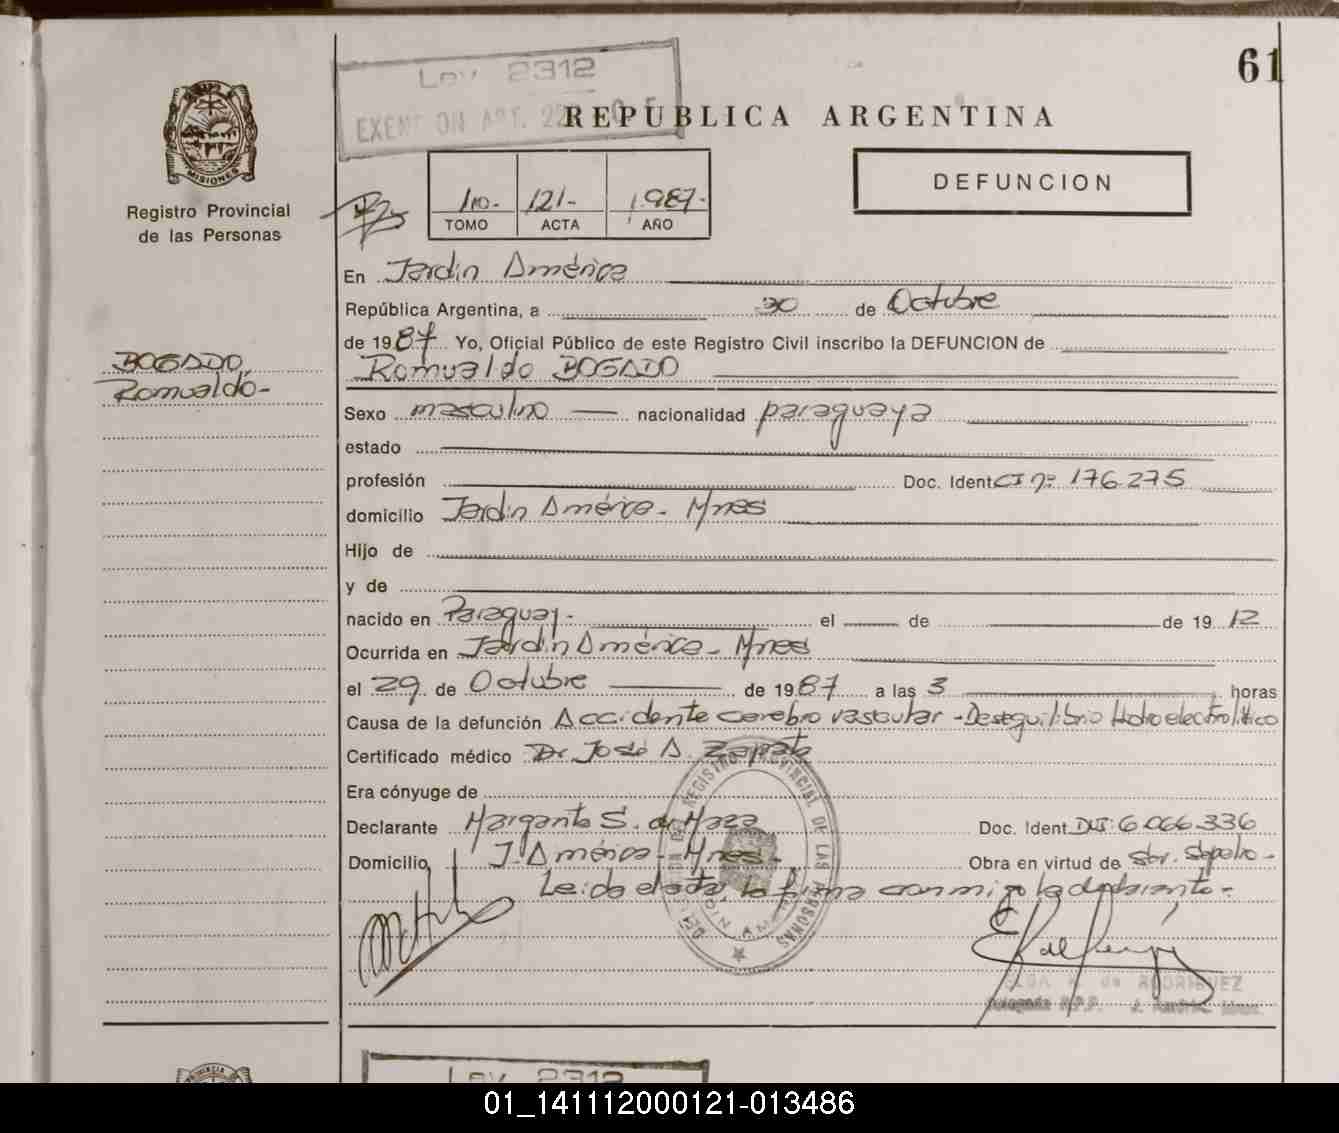 61
Ley 2312
REPUBLICA ARGENTINA
MISIONES
DEFUNCION
Registro Provincial
de las Personas
1º- 121- 1.987-
TOMO ACTA AÑO
En Jardín América
República Argentina, a 30 de Octubre
de 1987 Yo, Oficial Público de este Registro Civil inscribo la DEFUNCION de
BOGADO,
Romualdo-
Romualdo BOGADO
Sexo masculino nacionalidad paraguaya
estado
profesión Doc. Ident CI nº 176.275
domicilio Jardín América - Mnes
Hijo de
y de
nacido en Paraguay- el de de 1912
Ocurrida en Jardín América - Mnes
el 29 de Octubre de 1987 a las 3 horas
Causa de la defunción Accidente cerebro vascular - Desequilibrio Hidroelectrolítico
Certificado médico Dr. José A. Zapata
Era cónyuge de
Declarante Margarita S. de Maza Doc. Ident DNI: 6.066.336
Domicilio J. América - Mnes- Obra en virtud de
Leida el acta la firma conmigo la declarante-
REGISTRO PROVINCIAL DE LAS PERSONAS
de RODRIGUEZ
Ley 2312
01_141112000121-013486